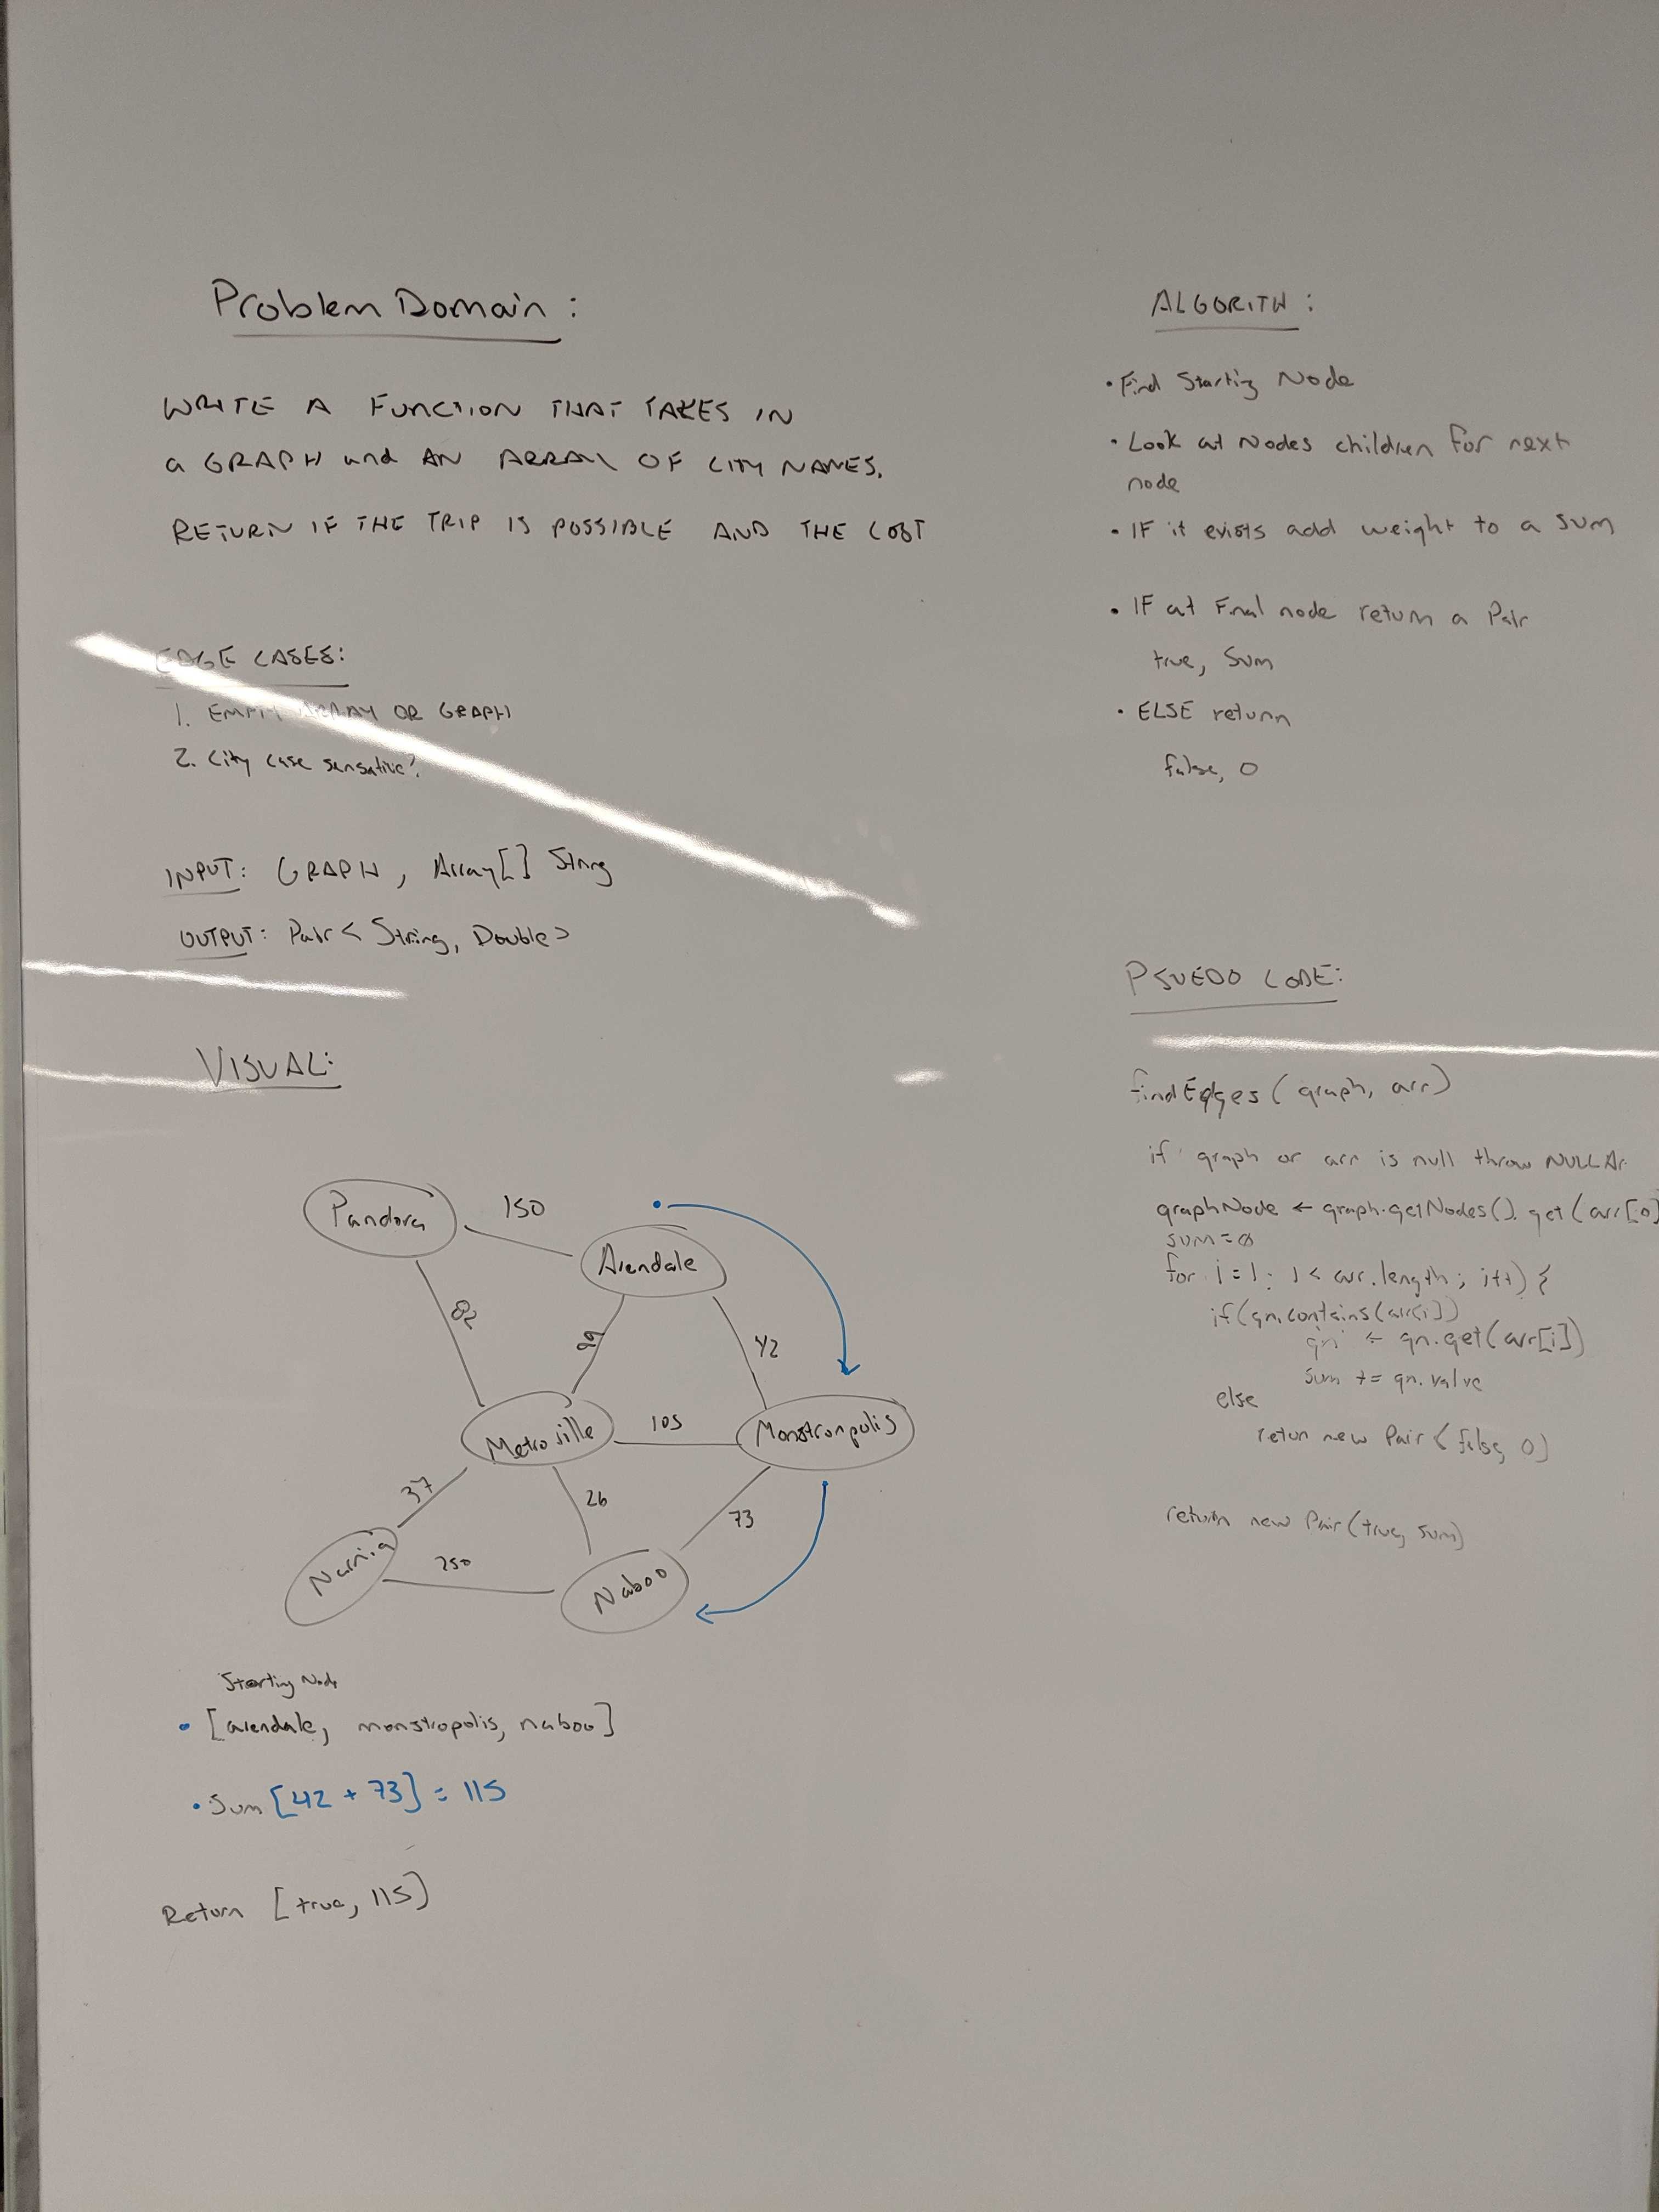 Problem Domain:
WRITE A FUNCTION THAT TAKES IN
a GRAPH and AN ARRAY OF CITY NAMES.
RETURN IF THE TRIP IS POSSIBLE AND THE COST
EDGE CASES:
1. EMPTY ARRAY OR GRAPH
2. City case sensative?
INPUT: GRAPH, Array[] String
OUTPUT: Pair< String, Double>
VISUAL:
Pandora
150
Arendale
82
99
42
Metroville
105
Monstronpolis
37
26
73
Narnia
250
Naboo
Starting Node
• [arendale, monstropolis, naboo]
• Sum [42 + 73] = 115
Return [true, 115)
ALGORITH:
• Find Starting Node
• Look at Nodes children for next
node
• IF it exists add weight to a sum
• IF at Final node return a Pair
true, Sum
• ELSE return
false, 0
PSUEDO CODE:
findEdges( graph, arr)
if graph or arr is null throw NULL Ar
graphNode ← graph.getNodes().get(arr[0]
sum = 0
for i = 1; i < arr.length; i++) {
if(gn.contains(arr[i])
gn ← gn.get(arr[i])
sum += gn.value
else
retun new Pair( false, 0)
return new Pair(true, sum)